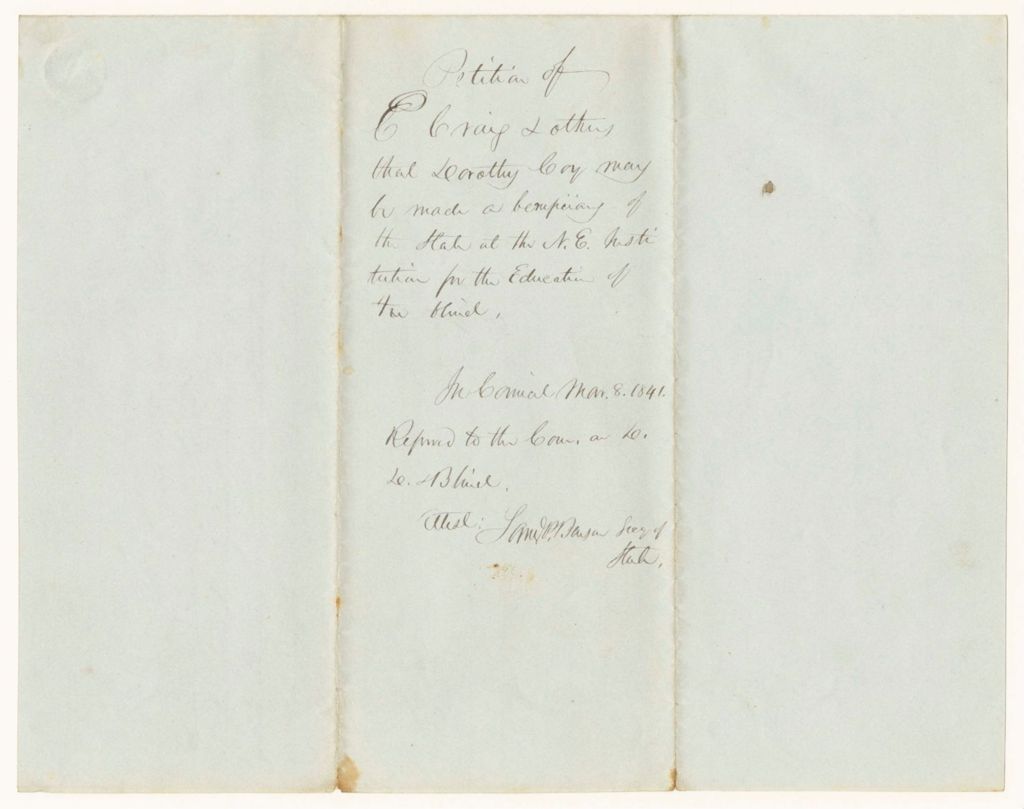 Petition of
E Craig & others
that Dorothy Coy may
be made a beneficiary of
the State at the N. E. Insti
tution for the Education of
the blind.
In Council Mar. 8. 1841.
Referred to the Com. on D.
D. & Blind.
Attest: Saml P. Benson Secy of
State.